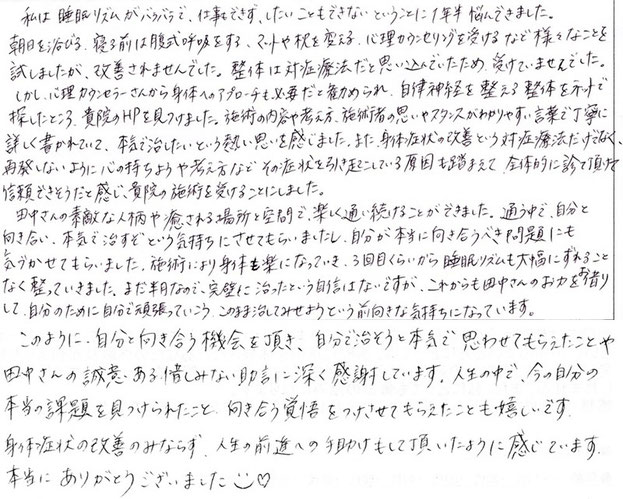 私は睡眠リズムがバラバラで、仕事もできず、したいこともできないということに1年半悩んできました。
朝日を浴びる、寝る前は腹式呼吸をする、マットや枕を変える、心理カウンセリングを受けるなど様々なことを
試しましたが、改善されませんでした。整体は対症療法だと思い込んでいたため、受けていませんでした。
しかし、心理カウンセラーさんから身体へのアプローチも必要だと勧められ、自律神経を整える整体をネットで
探したところ、貴院のHPを見つけました。施術の内容や考え方、施術者の思いやスタンスがわかりやすい言葉で丁寧に
詳しく書かれていて、本気で治したいという熱い思いを感じました。また、身体症状の改善という対症療法だけでなく、
再発しないように心の持ちようや考え方など その症状を引き起こしている原因も踏まえて 全体的に診て頂けて
信頼できそうだと感じ、貴院の施術を受けることにしました。
田中さんの素敵な人柄や癒される場所と空間で、楽しく通い続けることができました。通う中で、自分と
向き合い、本気で治すぞという気持ちにさせてもらいましたし、自分が本当に向き合うべき問題にも
気づかせてもらいました。施術により身体も楽になっていき、3回目くらいから睡眠リズムも大幅にずれること
なく整っていきました。まだ半月なので、完璧に治ったという自信はないですが、これからも田中さんのお力をお借り
して、自分のために自分で頑張っていこう、このまま治してみせようという前向きな気持ちになっています。
このように、自分と向き合う機会を頂き、自分で治そうと本気で思わせてもらえたことや
田中さんの誠意ある惜しみない助言に深く感謝しています。人生の中で、今の自分の
本当の課題を見つけられたこと、向き合う覚悟をつけさせてもらえたことも嬉しいです。
身体症状の改善のみならず、人生の前進への手助けもして頂いたように感じています。
本当に ありがとうございました